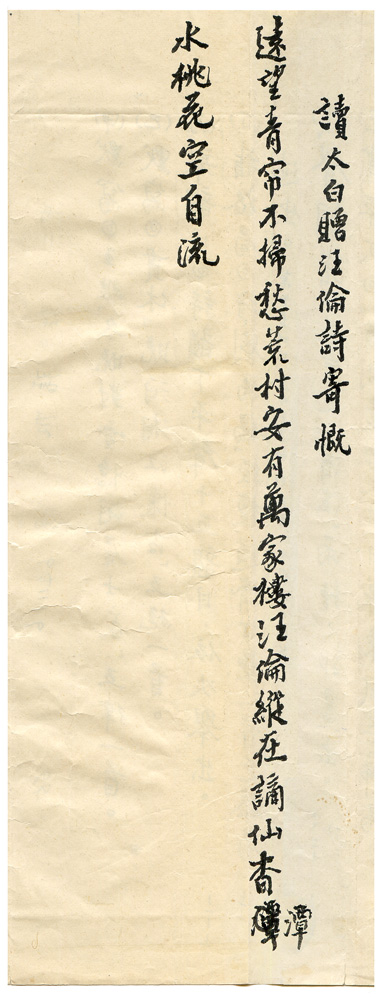 讀太白贈汪倫詩寄慨
遠望青帘不掃愁荒村安有萬家樓汪倫縱在謫仙杳潭
水桃花空自流